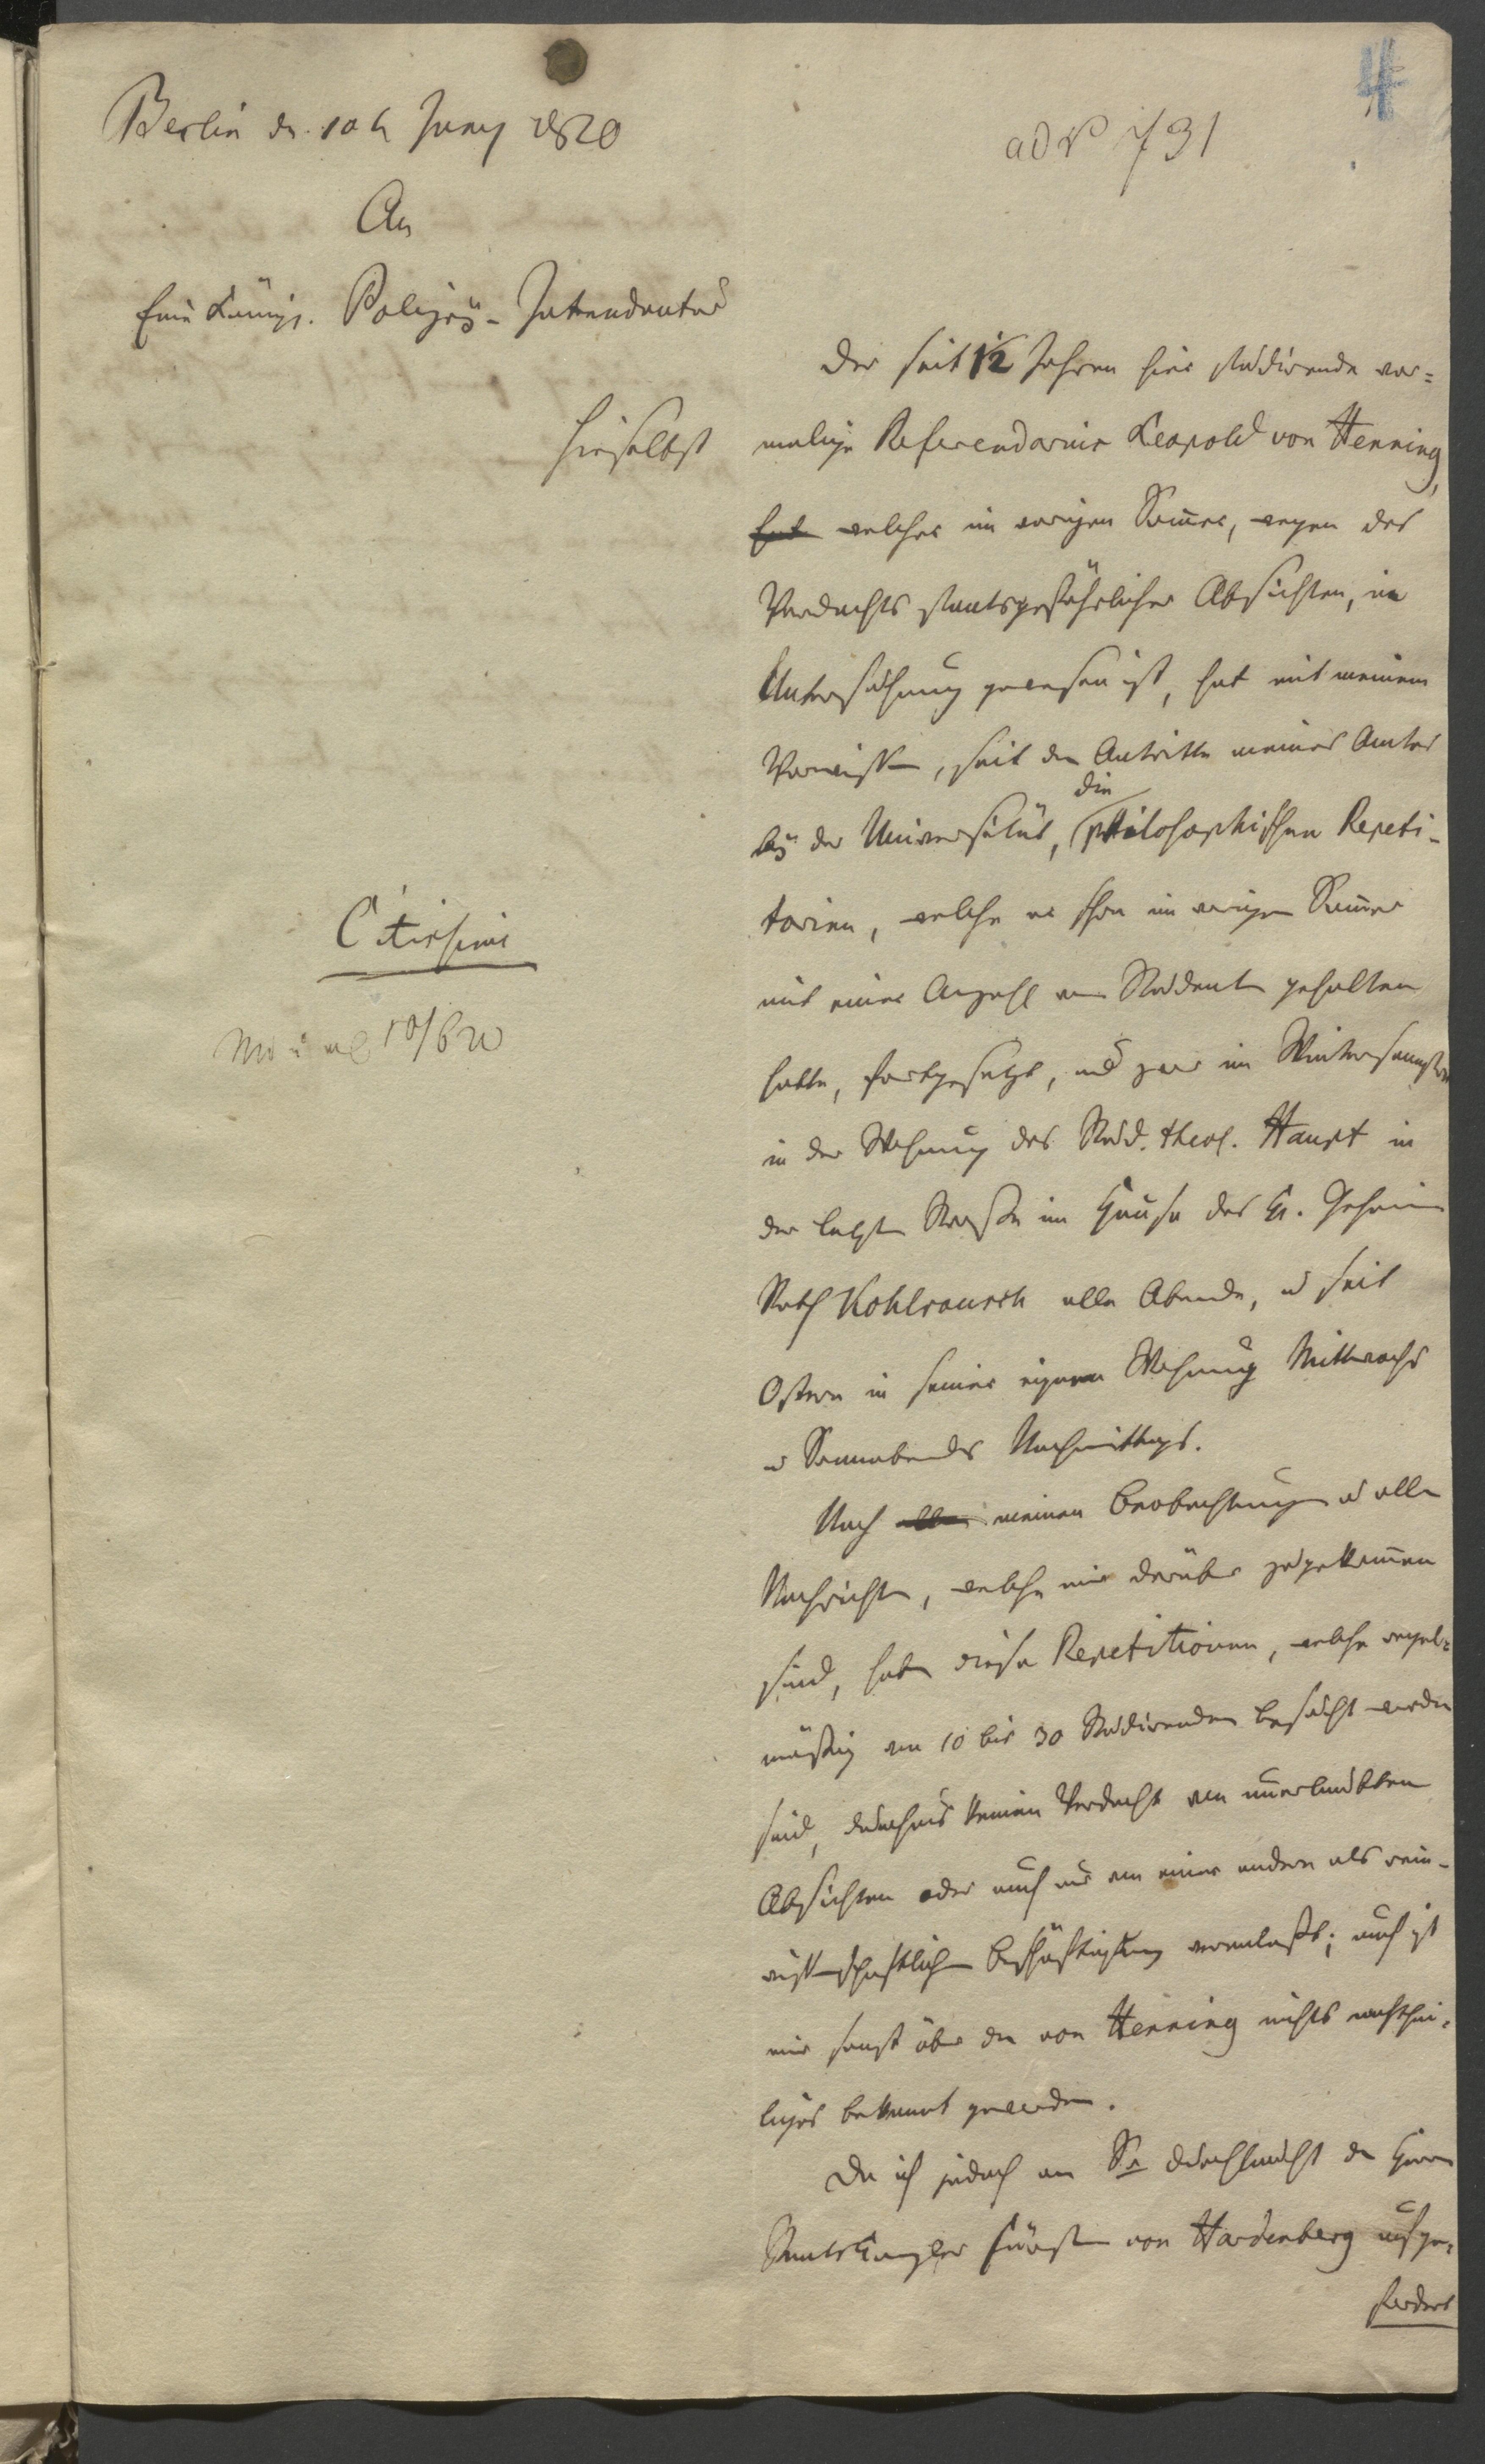 4
Berlin d. 10t Juny 1820
ad N 731
An
Eine Königl. Polizey-Intendantur
hieselbst
Citissime
10/6 20
Der seit 1½ Jahren hier studirende vor=
malige Referendarius Leopold von Henning,
hat welcher im vorigen Somer, wegen des
Verdachts staatsgefährlicher Absichten, in
Untersuchung gewesen ist, hat mit meinem
Vorwissen, seit dem Antritte meines Amtes
die
bey der Universität, philosophischen Repeti-
torien, welche er schon im vorigen Somer
mit einer Anzahl von Studenten gehalten
hatte, fortgesetzt, und zwar im Wintersemester
in der Wohnung des Stud. theol. Haupt in
der letzten Straße im Hause des H. Geheim
Rath Kohlrausch alle Abende, u seit
Ostern in seiner eigenen Wohnung Mittwochs
u Sonnabends Nachmittags.
Nach allen meinen Beobachtungen u allen
Nachrichten, welche mir darüber zugekomen
sind, haben diese Repetitionen, welche regel=
mäßig von 10 bis 30 Studirenden besucht worden
sind, durchaus keinen Verdacht von unerlaubten
Absichten oder auch nur von einer andern als rein-
wissenschaftlichen Beschäftigung veranlaßt; auch ist
mir sonst über den von Henning nichts nachthei=
liges bekannt geworden.
Da ich jedoch von Sr Durchlaucht dem Herrn
Staatskanzler Fürsten von Hardenberg aufge=
fordert